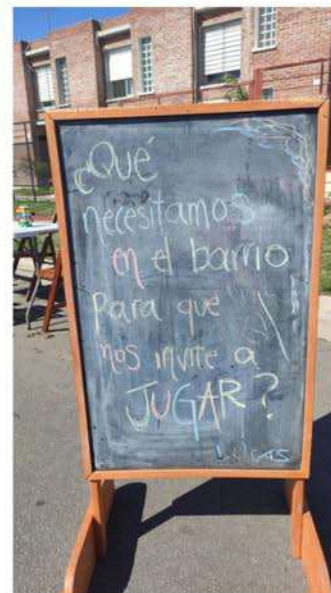 ¿Qué
necesitamos
en el barrio
Para que
nos invite a
JUGAR?
Lucas